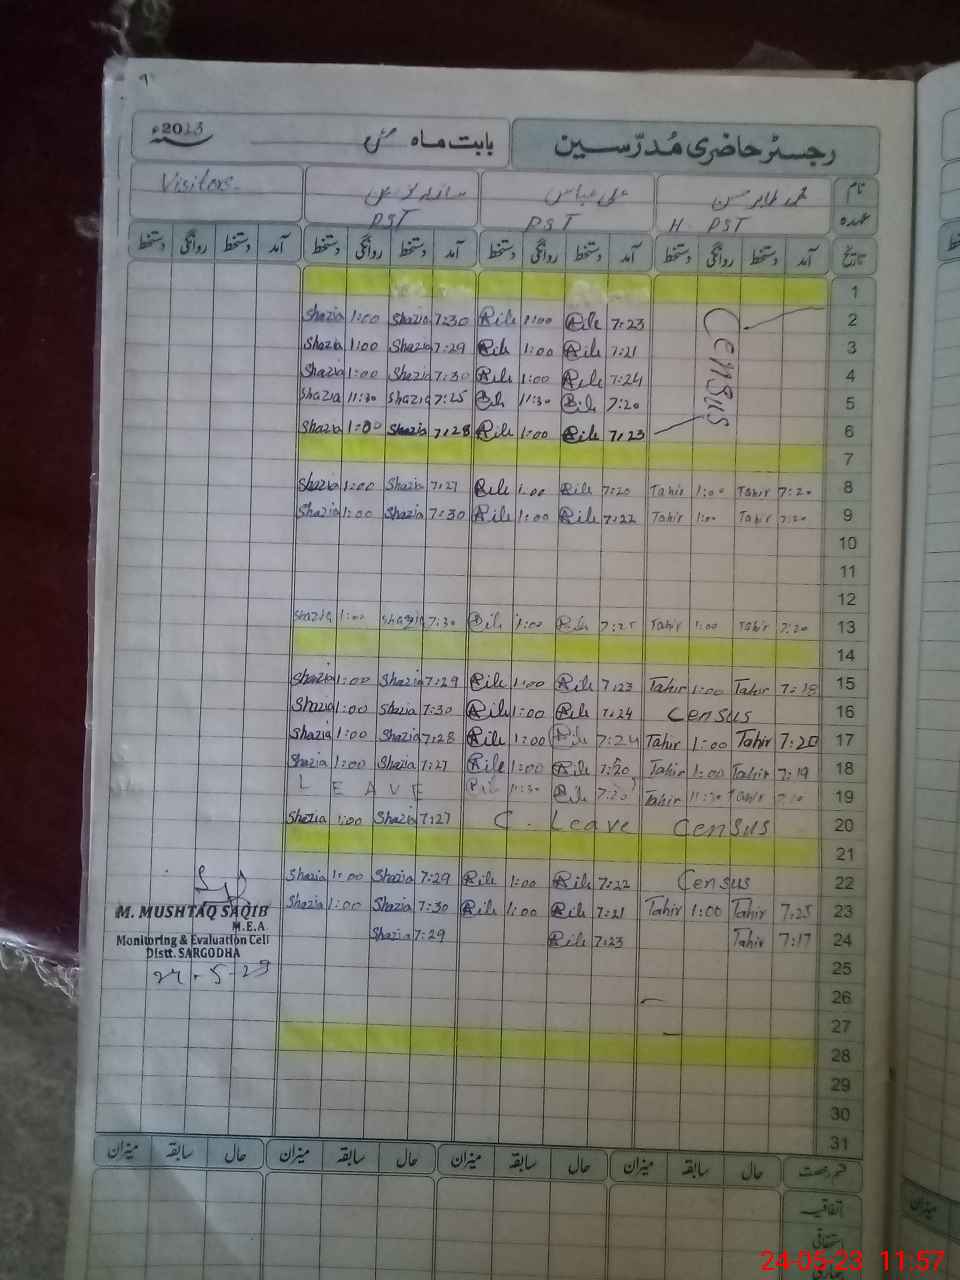 رجسٹر حاضری مدرّسین بابت ماہ مئی 2023
نام محمد طاہر حسن علی عباس Visitors.
عہدہ H. PST PST PST
تاریخ آمد دستخط روانگی دستخط آمد دستخط روانگی دستخط آمد دستخط روانگی دستخط آمد دستخط روانگی دستخط
1
Shazia 1:00 Shazia 7:30 1:00 7:23 Census 2
Shazia 1:00 Shazia 7:29 1:00 7:21 3
Shazia 1:00 Shazia 7:30 1:00 7:24 4
Shazia 11:30 Shazia 7:25 11:30 7:20 5
Shazia 1:00 Shazia 7:28 1:00 7:23 6
7
Shazia 1:00 Shazia 7:27 1:00 7:20 Tahir 1:00 Tahir 7:20 8
Shazia 1:00 Shazia 7:30 1:00 7:22 Tahir 1:00 Tahir 7:20 9
10
11
12
Shazia 1:00 Shazia 7:30 1:00 7:25 Tahir 1:00 Tahir 7:20 13
14
Shazia 1:00 Shazia 7:29 1:00 7:23 Tahir 1:00 Tahir 7:18 15
Shazia 1:00 Shazia 7:30 1:00 7:24 Census 16
Shazia 1:00 Shazia 7:28 1:00 7:24 Tahir 1:00 Tahir 7:20 17
Shazia 1:00 Shazia 7:27 1:00 7:20 Tahir 1:00 Tahir 7:19 18
LEAVE 11:30 7:20 Tahir 11:30 Tahir 19
Shazia 1:00 Shazia 7:27 C. Leave Census 20
21
Shazia 1:00 Shazia 7:29 1:00 7:22 Census 22
Shazia 1:00 Shazia 7:30 1:00 7:21 Tahir 1:00 Tahir 7:25 23
Shazia 7:29 7:23 Tahir 7:17 24
25
26
27
28
29
30
31
M. MUSHTAQ SAQIB
M.E.A.
Monitoring & Evaluation Cell
Distt. SARGODHA
24-5-23
قسم رخصت حال سابقہ میزان حال سابقہ میزان حال سابقہ میزان حال سابقہ میزان
اتفاقیہ
استحقاقی
میزان
24-05-23 11:57